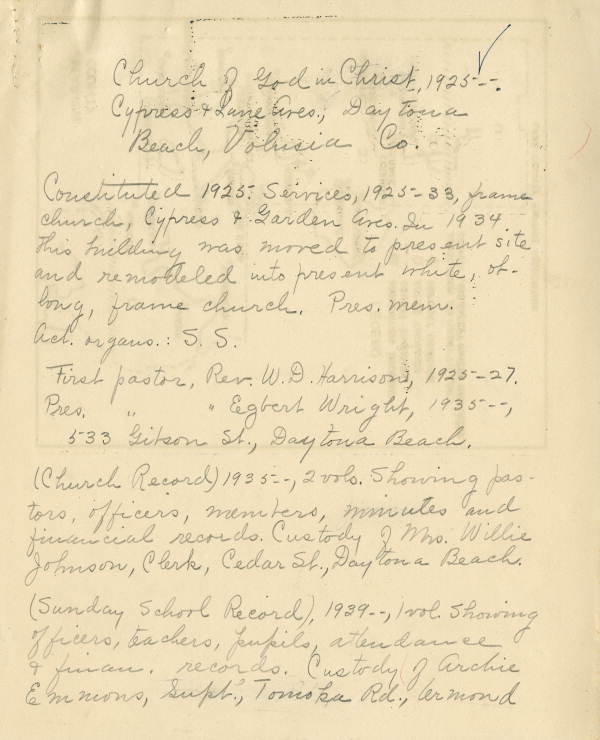 Church of God in Christ, 1925--.
Cypress & Lane Aves., Daytona
Beach, Volusia Co.
Constituted 1925. Services, 1925-33, frame
church, Cypress & Garden Aves. In 1934
this building was moved to present site
and remodeled into present white, ob-
long, frame church. Pres. mem.
Act. organs.: S. S.
First pastor, Rev. W. D. Harrison, 1925-27.
Pres. " " Egbert Wright, 1935--,
533 Gibson St., Daytona Beach.
(Church Record) 1935--, 2 vols. Showing pas-
tors, officers, members, minutes and
financial records. Custody of Mrs. Willie
Johnson, Clerk, Cedar St., Daytona Beach.
(Sunday School Record), 1939--, 1 vol. Showing
officers, teachers, pupils, attendance
& finan. records. Custody of Archie
Emmons, Supt., Tomoka Rd., Ormond